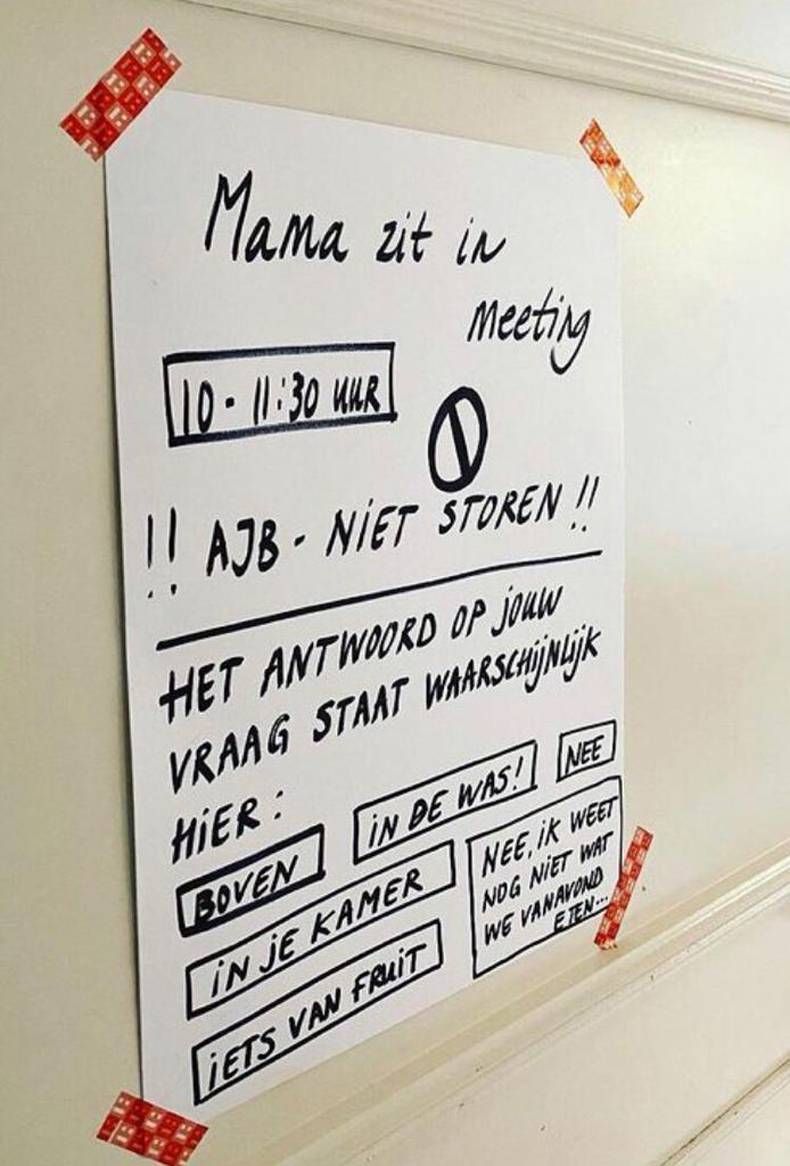 Mama zit in
meeting
10 - 11:30 UUR
!! AJB - NIET STOREN !!
HET ANTWOORD OP JOUW
VRAAG STAAT WAARSCHIJNLIJK
HIER:
IN DE WAS!
NEE
BOVEN
IN JE KAMER
IETS VAN FRUIT
NEE, IK WEET
NOG NIET WAT
WE VANAVOND
ETEN...